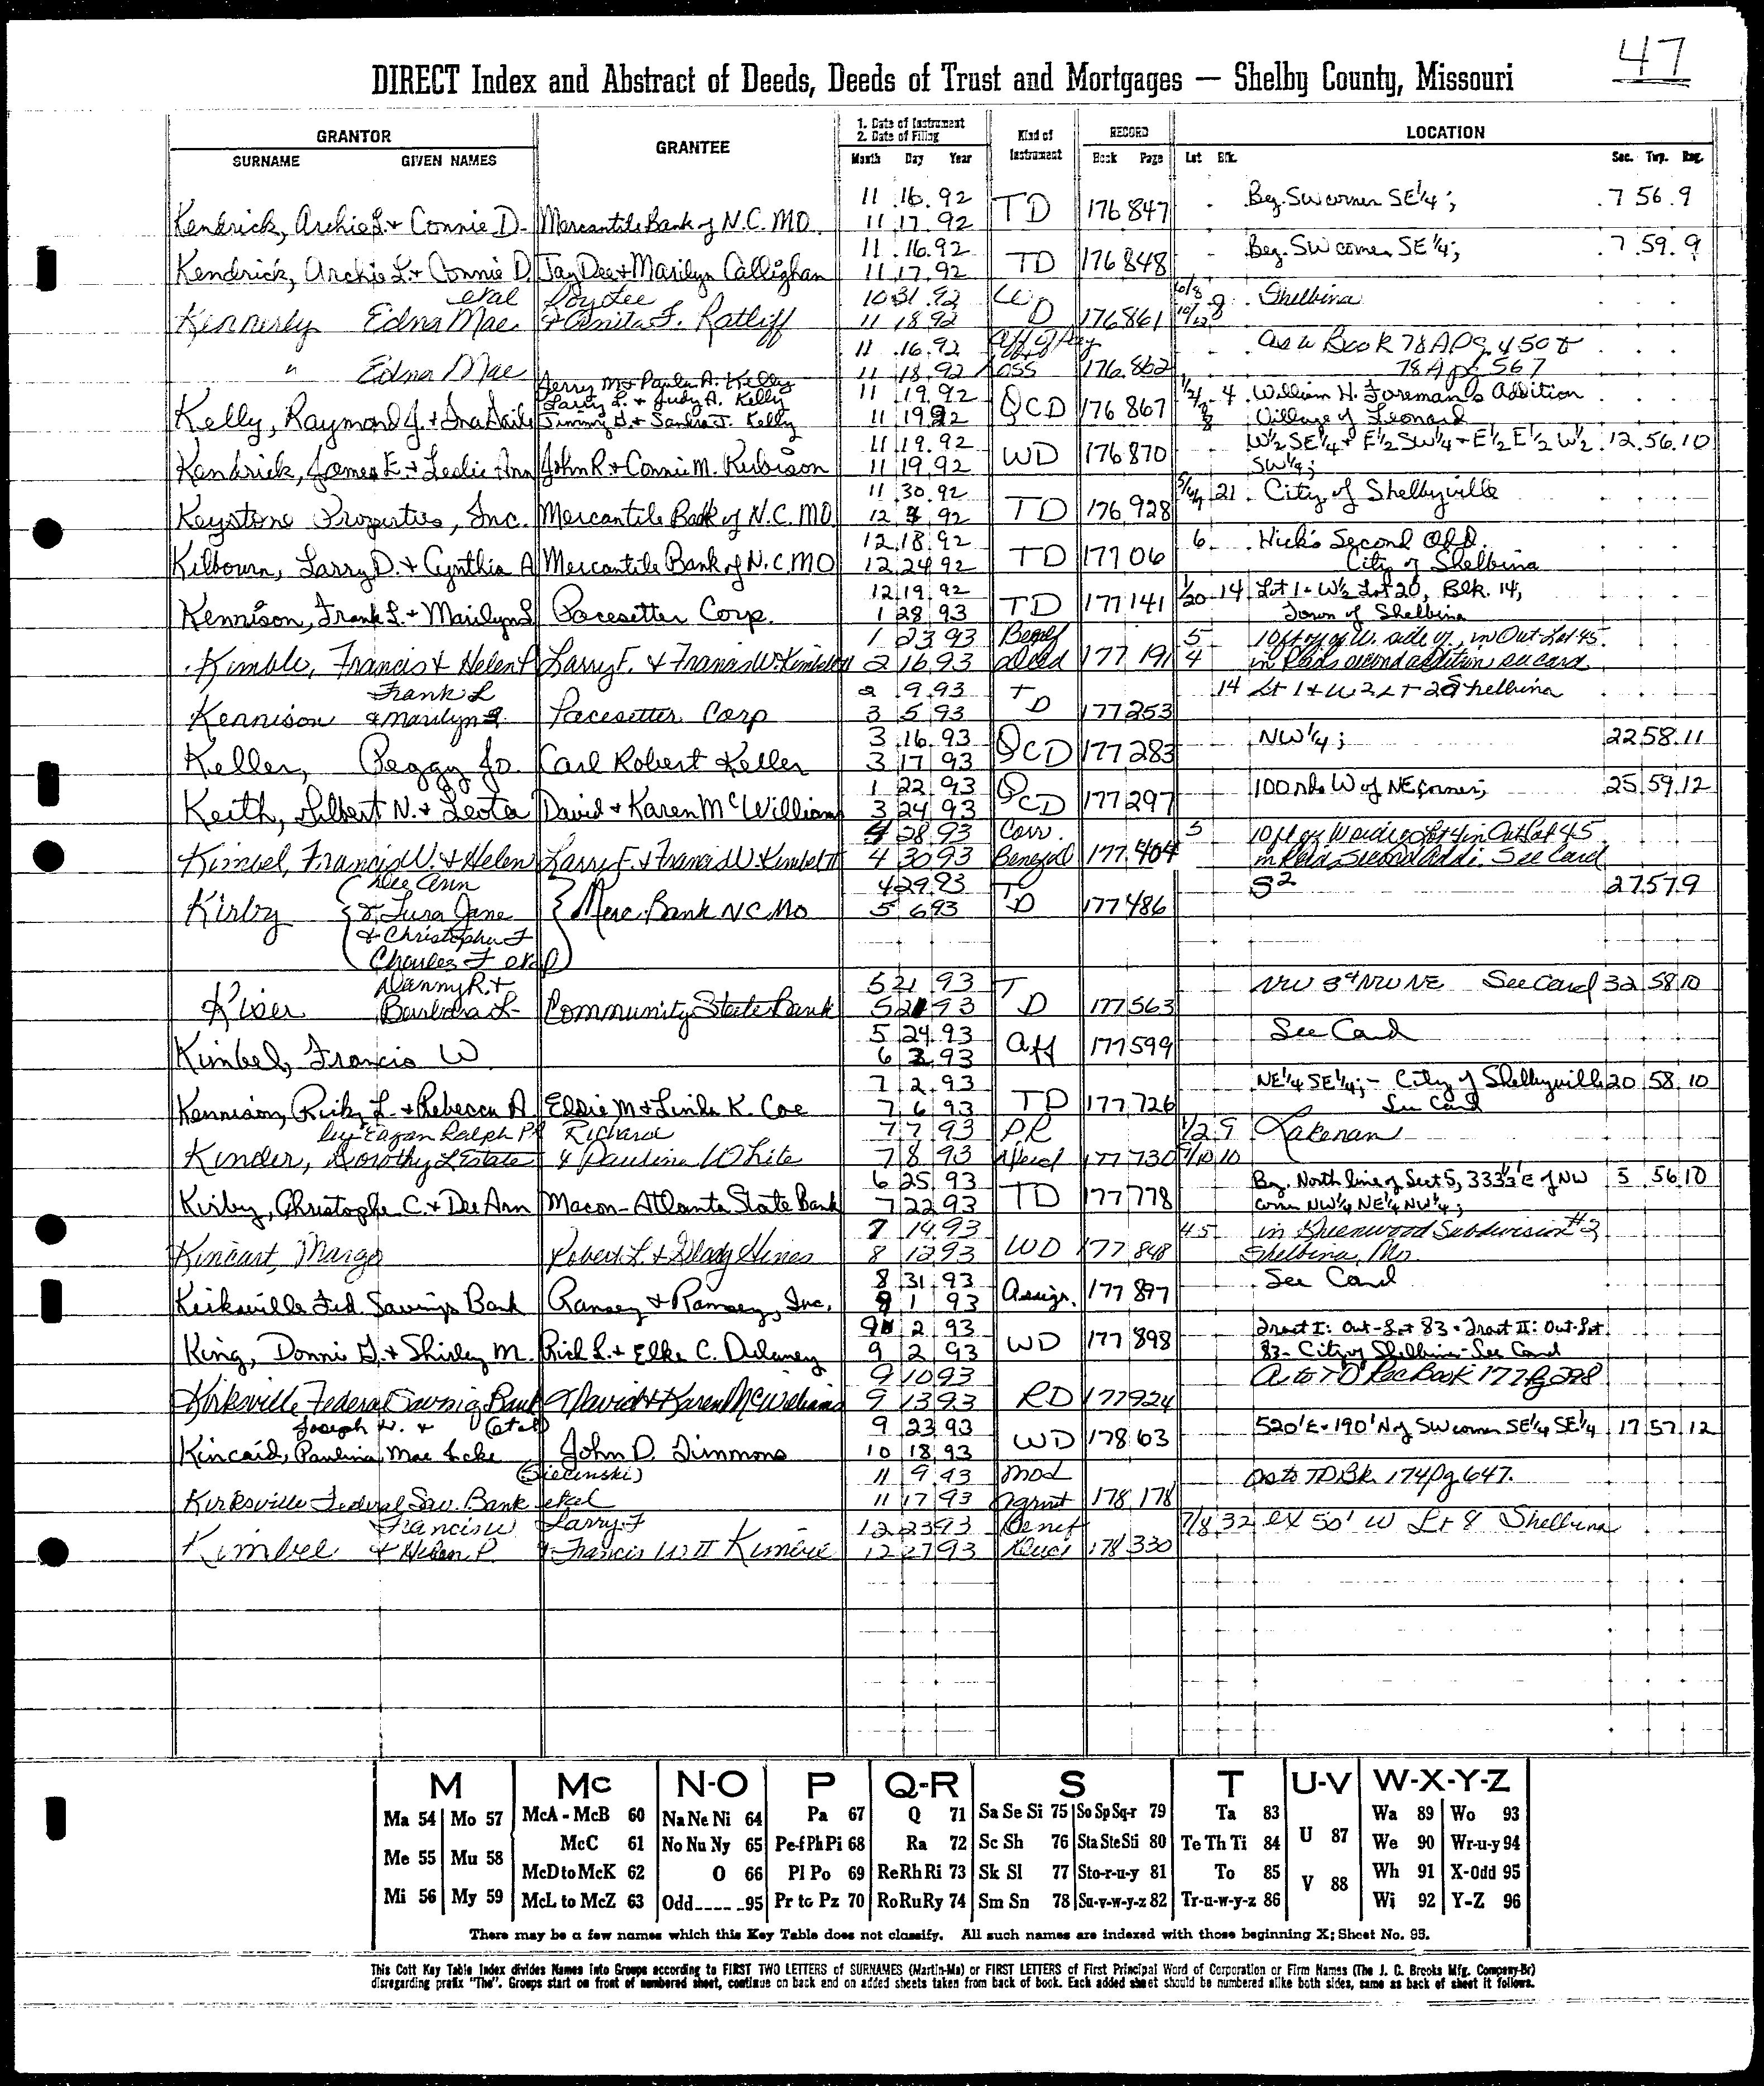 47
DIRECT Index and Abstract of Deeds, Deeds of Trust and Mortgages — Shelby County, Missouri
GRANTOR GRANTEE 1. Date of Instrument 2. Date of Filing Kind of Instrument RECORD LOCATION
SURNAME GIVEN NAMES Month Day Year Book Page Lot Blk. Sec. Twp. Rng.
11 16 92 Beg. SW corner SE 1/4; 7 56 9
Kendrick, Archie L. + Connie D. Mercantile Bank of N.C. MO. 11 17 92 TD 176 847
11 16 92 Beg. SW corner SE 1/4; 7 59 9
Kendrick, Archie L. + Connie D. Jay Dee + Marilyn Callighan 11 17 92 TD 176 848
etal Roy Lee 10 31 92 W Shelbina
Kennerly Edna Mae + Anita F. Ratliff 11 18 92 D 176 861
11 16 92 Aff of As in Book 78A Pg 450 +
" Edna Mae 11 18 92 Loss 176 862 78A pg 567
Jerry M + Paula A. Kelly
Larry L. + Judy A. Kelly 11 19 92 4 William H. Foreman's Addition
Kelly, Raymond J. + Ina Jimmy G. + Sandra J. Kelly 11 19 92 QCD 176 867 Village of Leonard
11 19 92 W 1/2 SE 1/4 + E 1/2 SW 1/4 + E 1/2 E 1/2 W 1/2 12 56 10
Kendrick, James E. + Leslie Ann John R. + Connie M. Kerbison 11 19 92 WD 176 870 SW 1/4;
11 30 92 5/6/7 21 City of Shelbyville
Keystone Properties, Inc. Mercantile Bank of N.C. MO 12 92 TD 176 928
12 18 92 6 Hick's Second Add.
Kilbourn, Larry D. + Cynthia A Mercantile Bank of N.C. MO 12 24 92 TD 177 06 City of Shelbina
12 19 92 1/20 14 Lot 1 + W 1/2 Lot 20, Blk. 14,
Kennison, Frank L. + Marilyn L Pacesetter Corp. 1 28 93 TD 177 141 Town of Shelbina
1 23 93 5 10 ft off of W. side of, in Out-Lot 45
Kimble, Francis + Helen P Larry F. + Francis W. Kimble II 2 16 93 Deed 177 191 4 in second addition, see card
Frank L 2 9 93 T 14 Lt 1 + W 2 Lt 20 Shelbina
Kennison + Marilyn Pacesetter Corp 3 5 93 D 177 253
3 16 93 NW 1/4; 22 58 11
Keller, Peggy Jo. Carl Robert Keller 3 17 93 QCD 177 283
1 22 93 100 rds W of NE corner; 25 59 12
Keith, Gilbert N. + Leota David + Karen McWilliams 3 24 93 QCD 177 297
4 28 93 Corr. 5 10 ft off W side Lot 4 in Out Lot 45
Kimbel, Francis W. + Helen Larry F. + Francis W Kimbel II 4 30 93 177 404 in Second Add. See Card
Dee Ann 4 29 93 T S 2 27 57 9
Kirby + Lura Jane Merc. Bank NC Mo 5 6 93 D 177 486
+ Christopher
Charles F etal
Danny R. + 5 21 93 T NW 3 4 NW NE See Card 32 58 10
Kiser Barbara L. Community State Bank 5 21 93 D 177 563
5 24 93 See Card
Kimbel, Francis W 6 93 Aff 177 599
7 2 93 NE 1/4 SE 1/4; - City of Shelbyville 20 58 10
Kennison, Ricky L. + Rebecca A. Elsie M + Linda K. Coe 7 6 93 TD 177 726 See Card
by Eagan Ralph PR Richard 7 7 93 PR 1/2 9 Lakenan
Kinder, Dorothy L Estate + Pauline White 7 8 93 Deed 177 730 9/10 10
6 25 93 Beg. North line of Sect 5, 333 1/3' E of NW 5 56 10
Kirby, Christophe C. + Dee Ann Macon-Atlanta State Bank 7 22 93 TD 177 778 corner NW 1/4 NE 1/4 NW 1/4;
7 14 93 45 in Greenwood Subdivision #2,
Kincart, Margo Robert L. + Glady Hines 8 12 93 WD 177 848 Shelbina, Mo.
8 31 93 See Card
Kirksville Fed. Savings Bank Ramsey + Ramsey, Inc. 9 1 93 Assign. 177 897
9 2 93 Tract I: Out-Lot 83 - Tract II: Out-Lot
King, Donnie G. + Shirley M. Rick L. + Elke C. Delaney 9 2 93 WD 177 898 83 - City of Shelbina - See Card
9 10 93 As to TD Rec Book 177 Pg 298
Kirksville Federal Savings Bank David + Karen McWilliams 9 13 93 RD 177 924
Joseph W. + (etal) 9 23 93 520' E + 190' N of SW corner SE 1/4 SE 1/4 17 57 12
Kincaid, Paulina Mae Icke John D. Timmons 10 18 93 WD 178 63
(Siecinski) 11 9 93 Mod As to TD Bk 174 Pg 647.
Kirksville Federal Sav. Bank etal 11 17 93 Agrmt 178 178
Francis W Larry F 12 23 93 Benef 7/8 32 ex 50' W Lt 8 Shelbina
Kimbel + Helen P. + Francis W II Kimbel 12 27 93 Deed 178 330
M Mc N-O P Q-R S T U-V W-X-Y-Z
Ma 54 Mo 57 McA - McB 60 Na Ne Ni 64 Pa 67 Q 71 Sa Se Si 75 So Sp Sq-r 79 Ta 83 U 87 Wa 89 Wo 93
McC 61 No Nu Ny 65 Pe-f Ph Pi 68 Ra 72 Sc Sh 76 Sta Ste Sti 80 Te Th Ti 84 We 90 Wr-u-y 94
Me 55 Mu 58 McD to McK 62 O 66 Pl Po 69 Re Rh Ri 73 Sk Sl 77 Sto-r-u-y 81 To 85 V 88 Wh 91 X-Odd 95
Mi 56 My 59 McL to McZ 63 Odd 95 Pr to Pz 70 Ro Ru Ry 74 Sm Sn 78 Su-v-w-y-z 82 Tr-u-w-y-z 86 Wi 92 Y-Z 96
There may be a few names which this Key Table does not classify. All such names are indexed with those beginning X; Sheet No. 95.
This Cott Key Table Index divides Names into Groups according to FIRST TWO LETTERS of SURNAMES (Martin-Ma) or FIRST LETTERS of First Principal Word of Corporation or Firm Names (The J. C. Brooks Mfg. Company-Br)
disregarding prefix "The". Groups start on front of numbered sheet, continue on back and on added sheets taken from back of book. Each added sheet should be numbered alike both sides, same as back of sheet it follows.